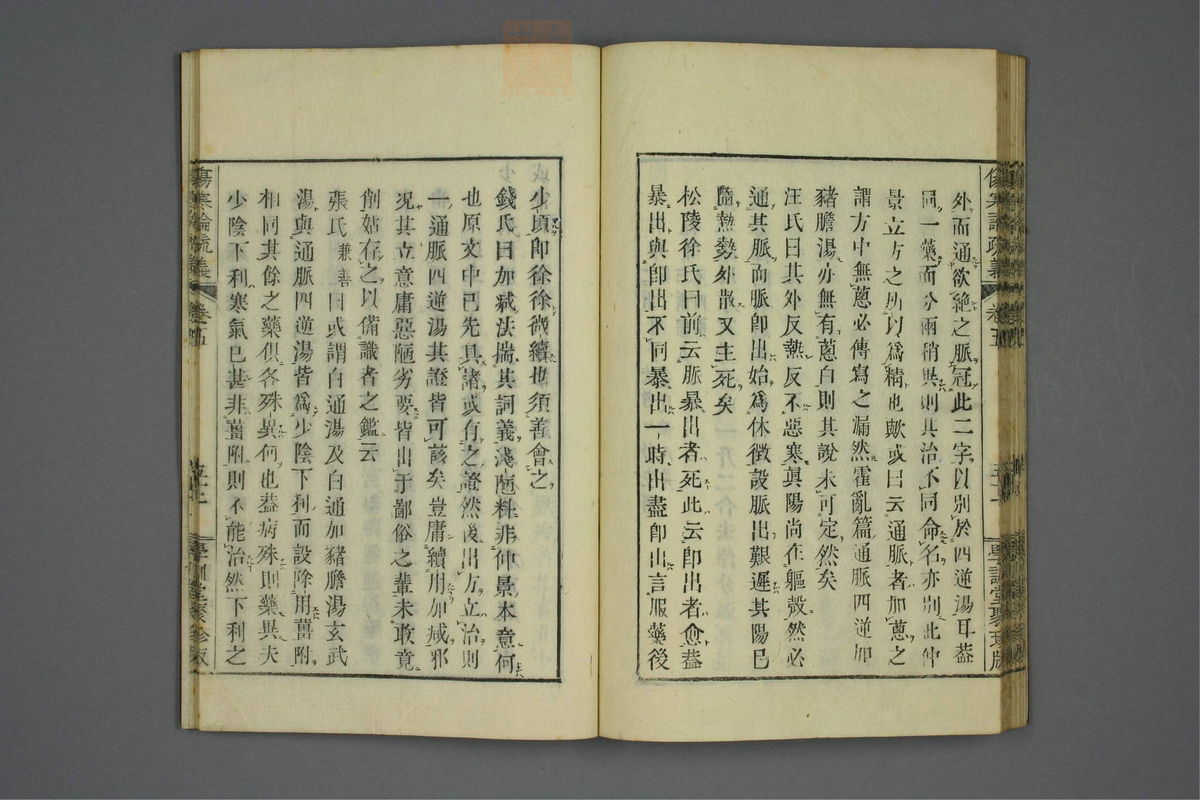 外而通欲絕之脈冠此二字以別於四逆湯耳蓋
同一藥而分兩稍異則其治不同命名亦別此仲
景立方之所以爲精也歟或曰云通脈者加蔥之
謂方中無蔥必傳寫之漏然霍亂篇通脈四逆加
豬膽湯亦無有蔥白則其說未可定然矣
汪氏曰其外反熱反不惡寒眞陽尚在軀殼然必
通其脈而脈卽出始爲休徵設脈出艱遲其陽已
隨熱勢外散又主死矣
松陵徐氏曰前云脈暴出者死此云卽出者愈蓋
暴出與卽出不同暴出一時出盡卽出言服藥後
少頃卽徐徐微續也須善會之
錢氏曰加減法揣其詞義淺陋料非仲景本意何
也原文中已先具諸或有之證然後出方立治則
一通脈四逆湯其證皆可該矣豈庸續用加減邪
況其立意庸惡陋劣要皆出于鄙俗之輩未敢竟
削姑存之以備識者之鑑云
張氏兼善曰或謂白通湯及白通加豬膽湯玄武
湯與通脈四逆湯皆爲少陰下利而設除用薑附
相同其餘之藥俱各殊異何也蓋病殊則藥異夫
少陰下利寒氣已甚非薑附則不能治然下利之
傷寒論疏義 卷五 學訓堂聚珍版